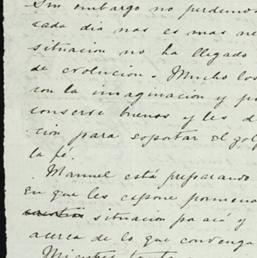 Sin embargo no perdemos
cada día nos es mas ne
situación no ha llegado
de evolución. Mucho los
con la imaginación y p
conserve buenos y les d
ción para soportar el gol
la fé.
Manuel está preparando
en que les expone pormeno
situación pa acá y
acerca de lo que convenga